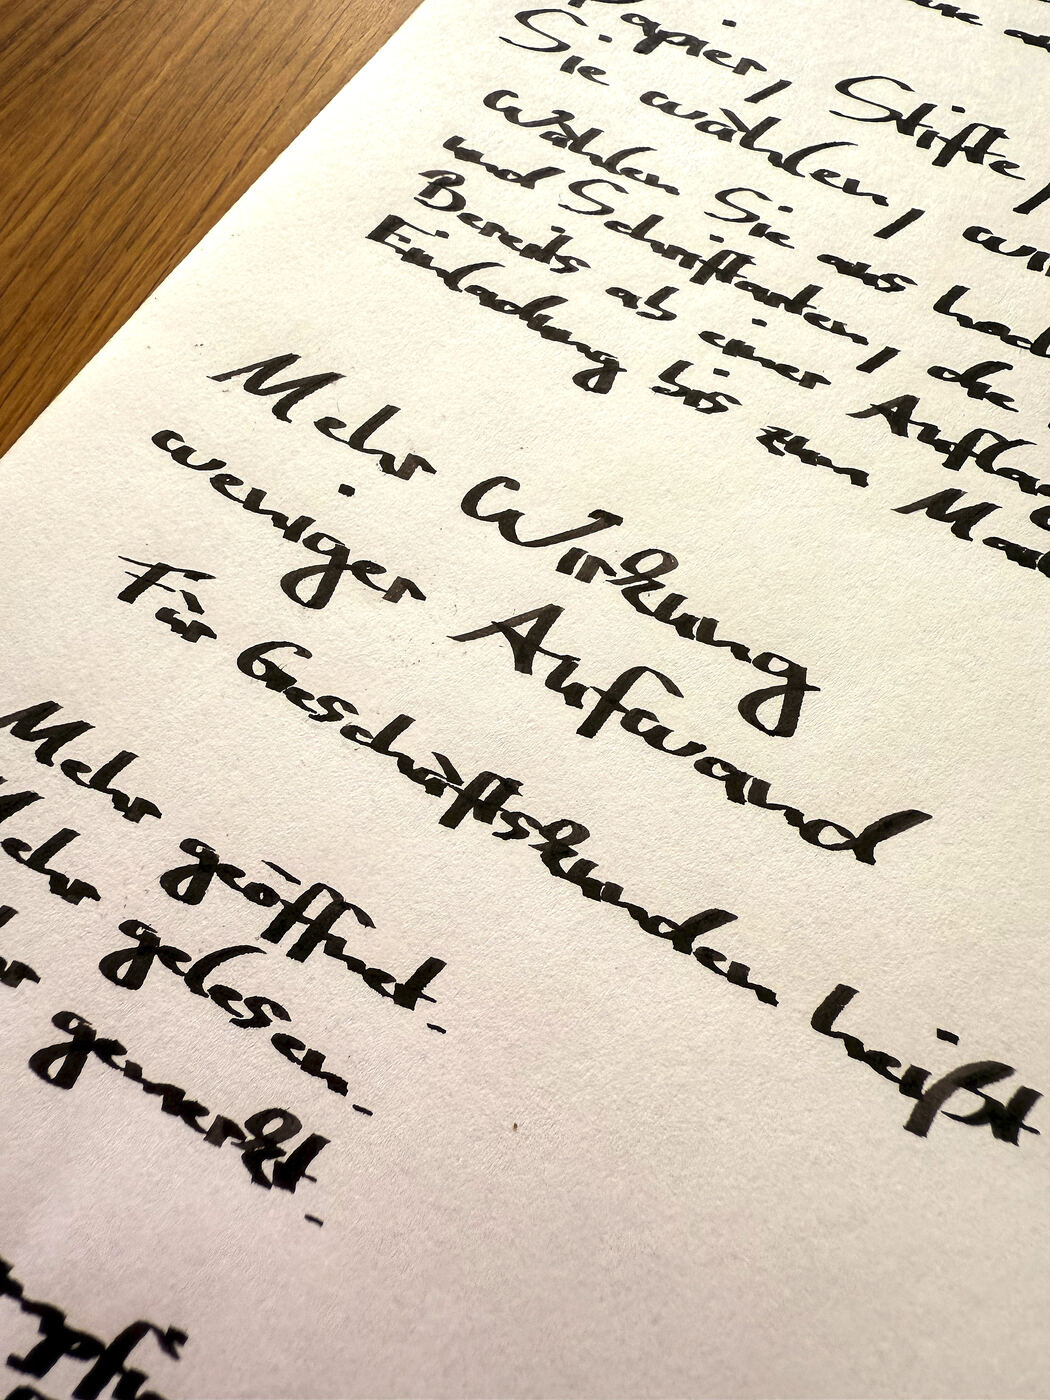 Papier, Stifte,
Sie wählen,
Wählen Sie aus
und Schriftarten, die
Bereits ab einer
Einladung bis zum
Mehr Wirkung
weniger Aufwand
Für Geschäftskunden heißt
Mehr geöffnet.
Mehr gelesen.
gemerkt.